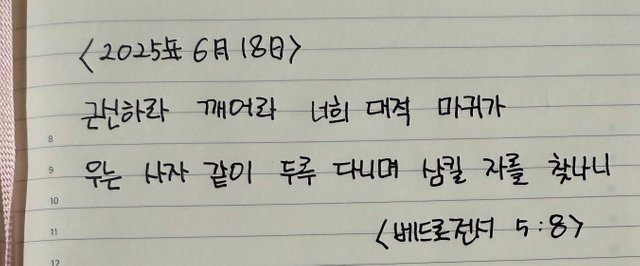 <2025年 6月 18日>
근신하라 깨어라 너희 대적 마귀가
8
우는 사자 같이 두루 다니며 삼킬 자를 찾나니
9
10
<베드로전서 5:8>
11
12